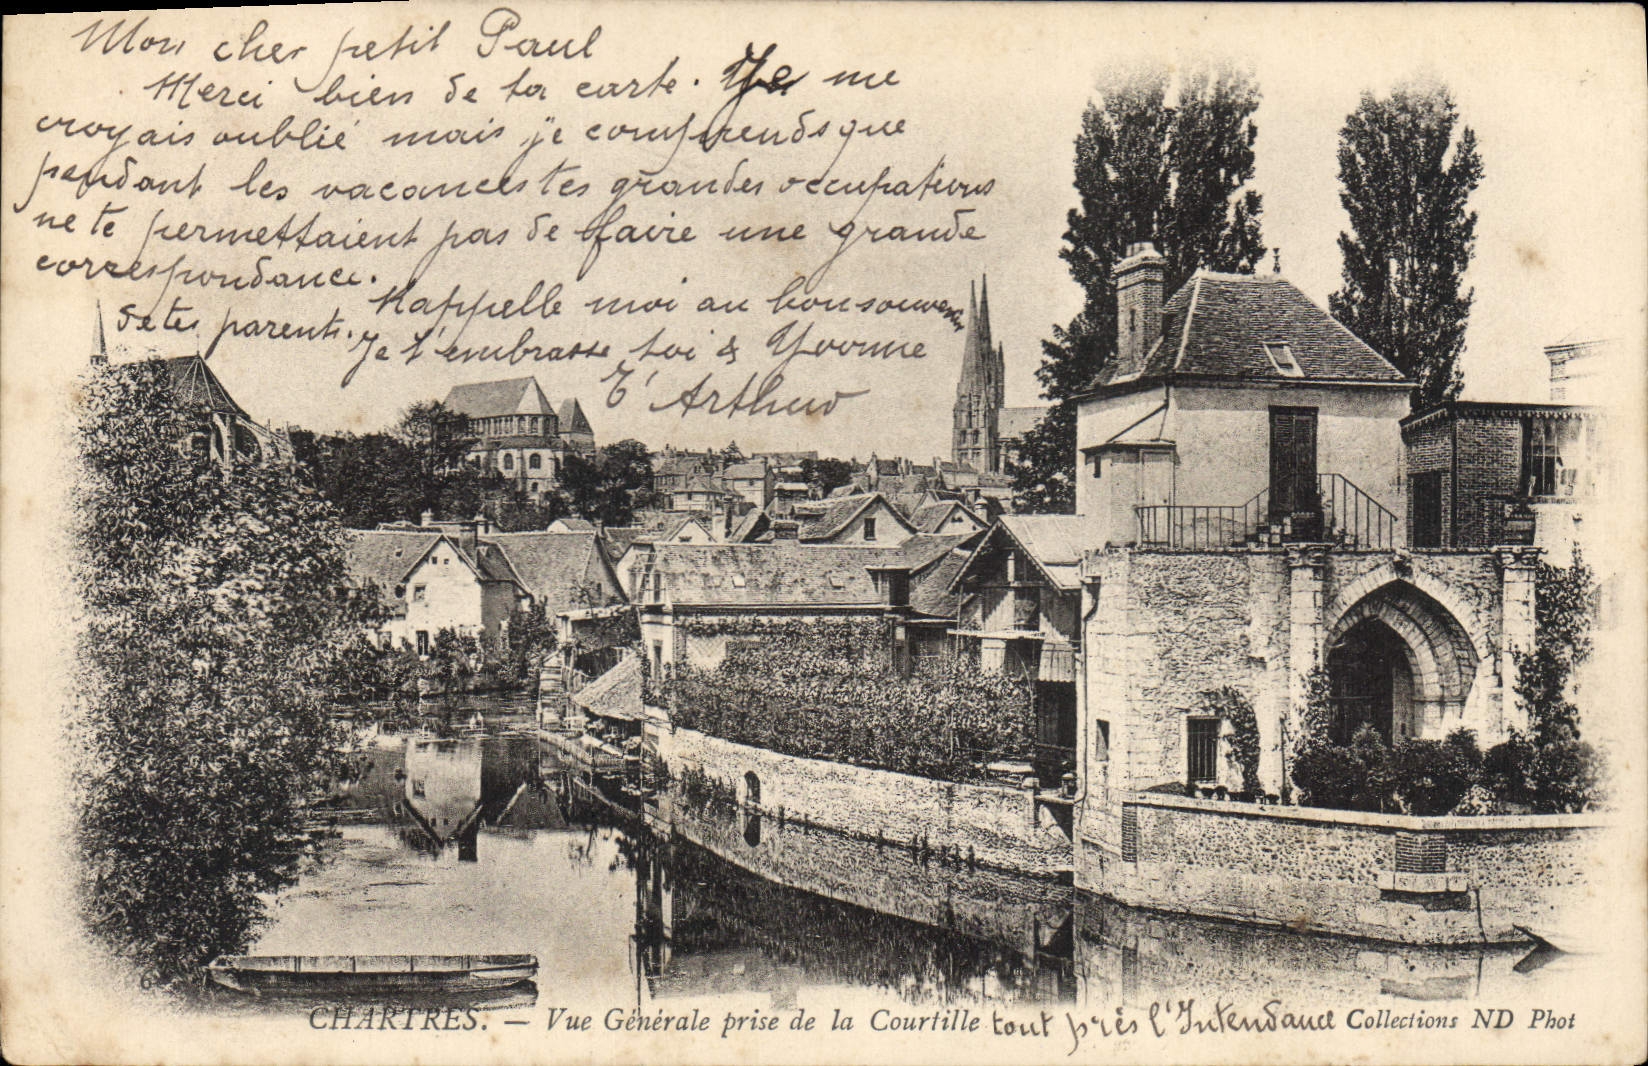 Mon cher petit Paul
Merci bien de ta carte. Je me
croyais oublié mais je comprends que
pendant les vacances tes grandes occupations
ne te permettaient pas de faire une grande
correspondance.
Rappelle moi au bon souvenir
de tes parents.
Je t'embrasse toi & Yvonne
T' Arthur
6
CHARTRES. — Vue Générale prise de la Courtille tout près l'Intendance Collections ND Phot